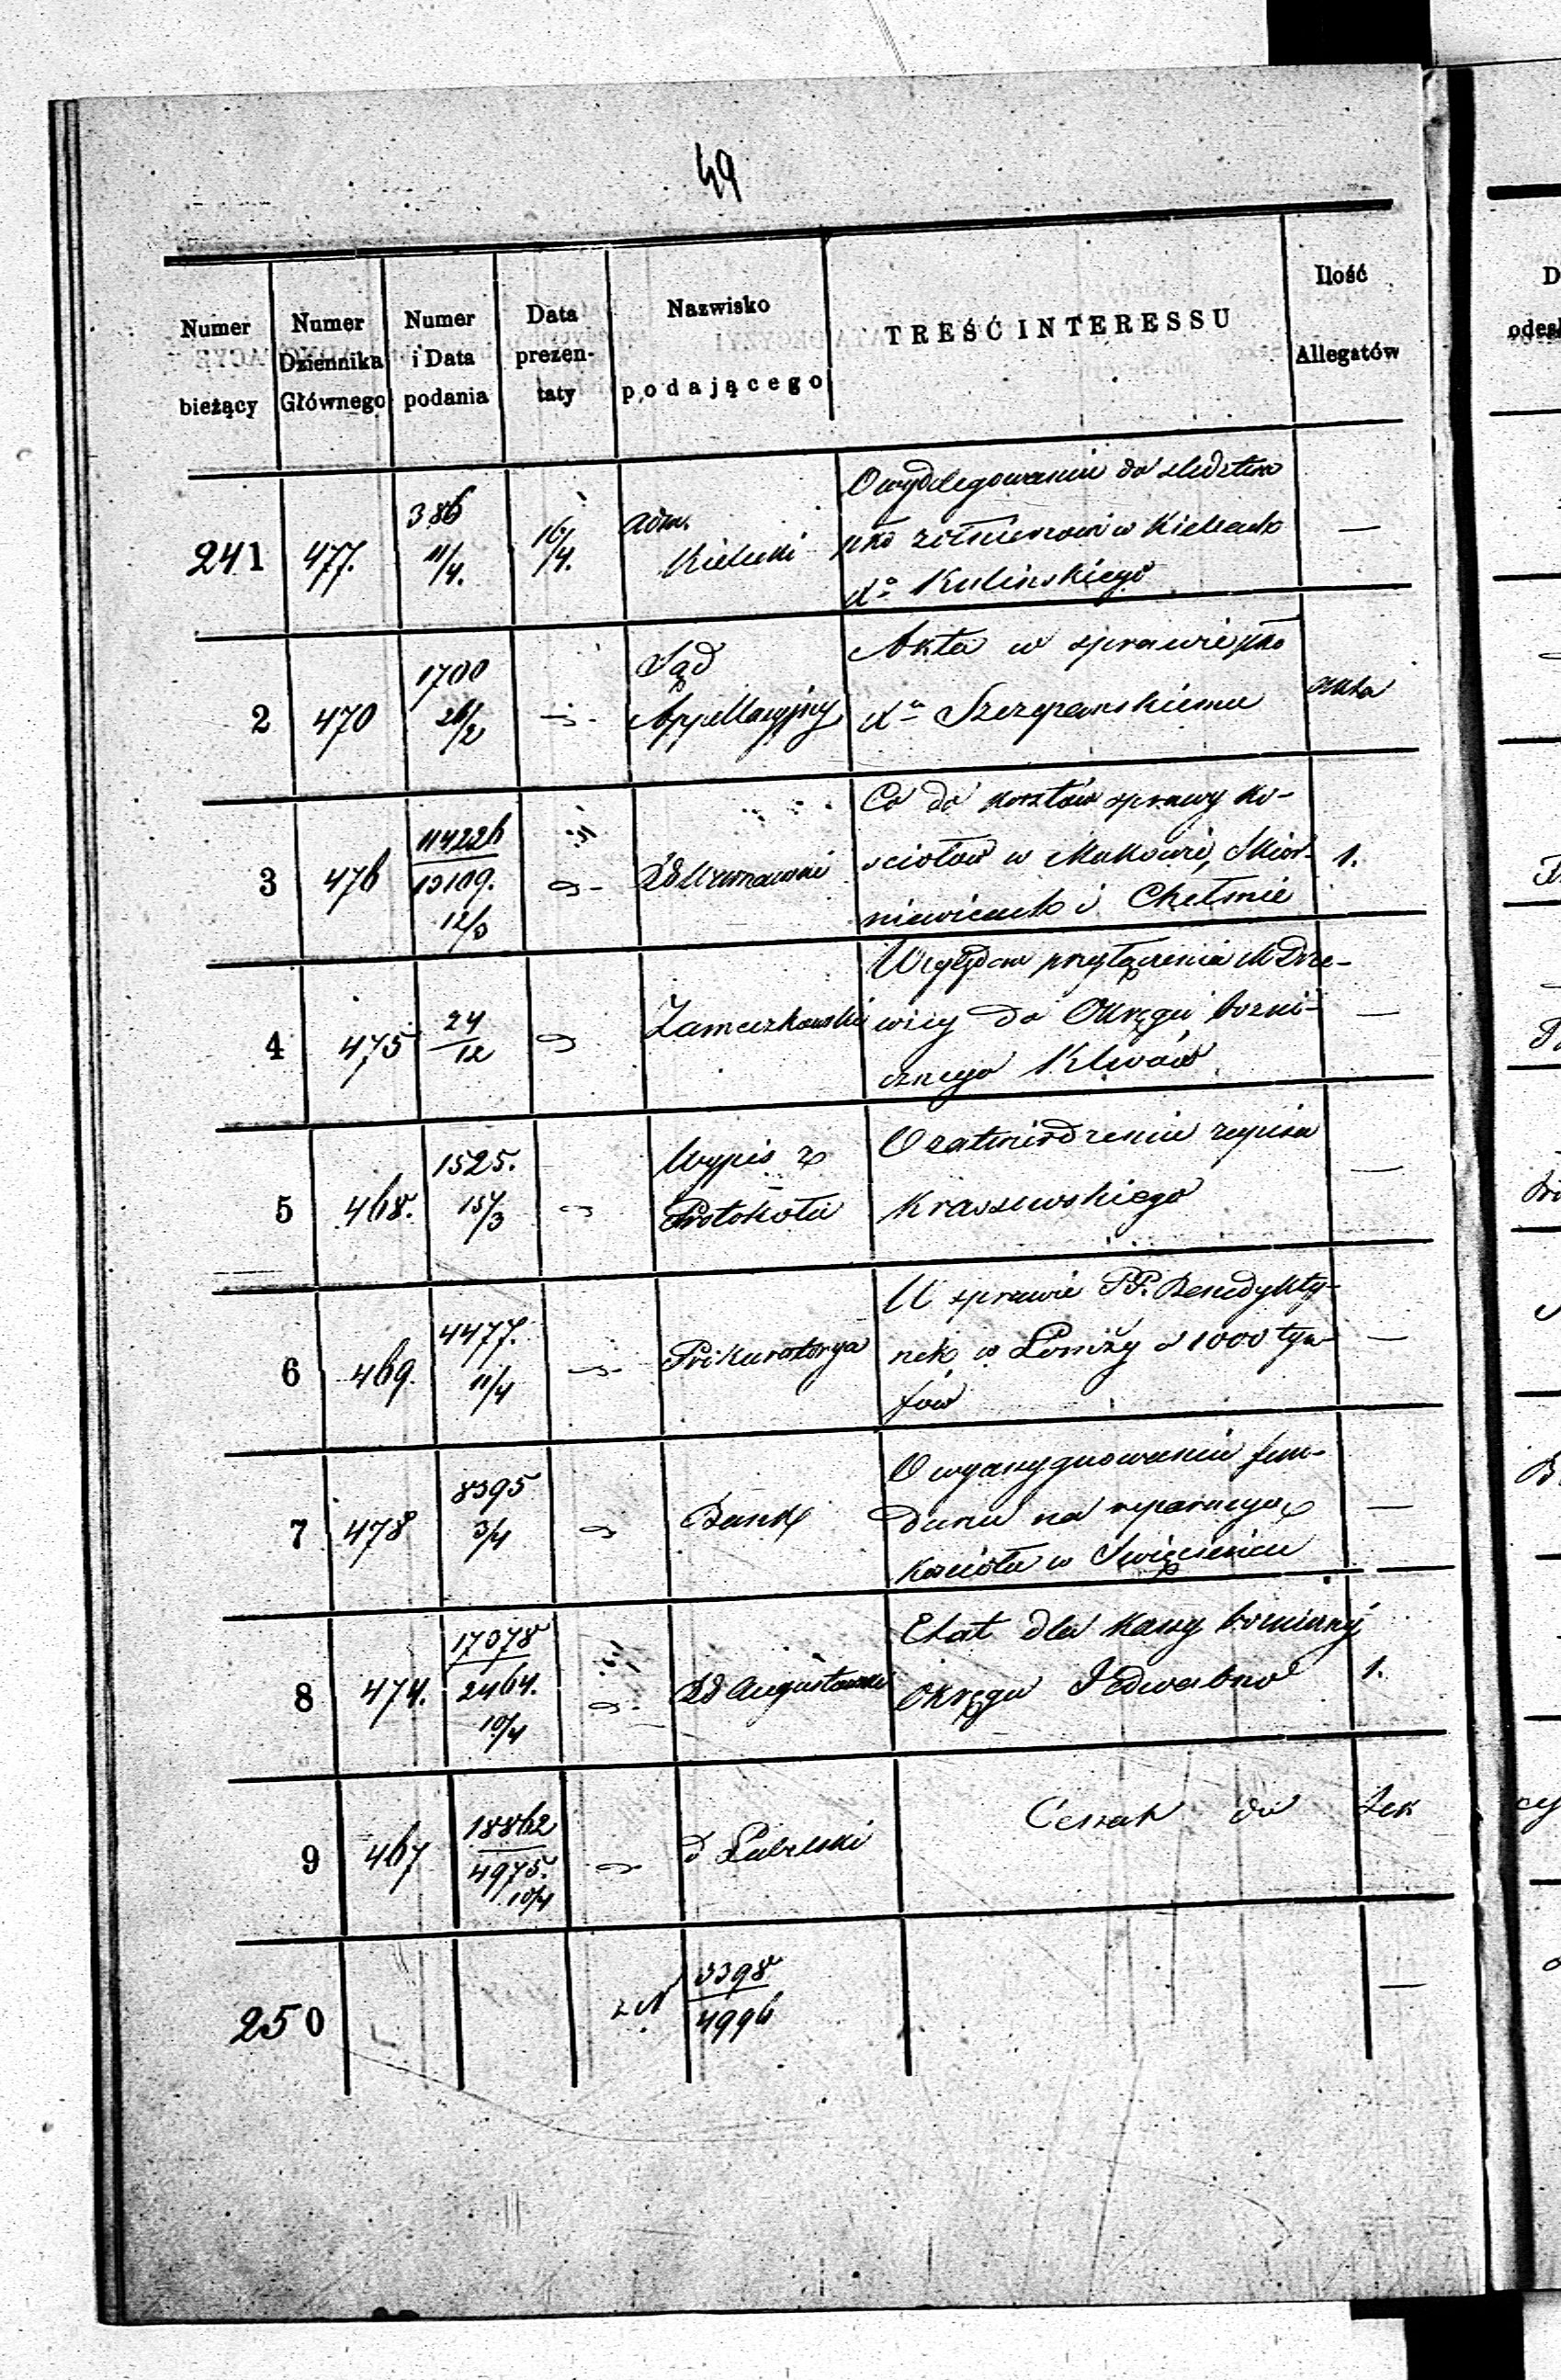 49
Numer bieżący
Numer Dziennika Głównego
Numer i Data podania
Data prezen- taty
Nazwisko podającego
TREŚĆ INTERESSU
Ilość Allegatów
241 477. 386 11/4. 16/4. Adm. Kielecki
O wydelegowaniu do śledztwa
pko żołnierzowi w Kielcach
Xa Kulinskiego
—
2 470 1700 26/2 -„- Sąd Appellacyjny
Akta w sprawie pko
Xu Szczepanskiemu
akta
3 476 114226 13109. 12/3
Co do kosztów sprawy ko-
sciołów w Makowie, Skier-
niewicach i Chełmie
1.
4 475 24/12 Zameczkowski
Względem przyłączenia M Drze-
wicy do Okręgu bożni-
cznego Klwów
—
5 468. 1525. 15/3 Wypis z Protokołu
O zatwierdzeniu zapisu
Kraszewskiego
—
6 469. 4477. 11/4 -„- Prokuratorya
W sprawie PP. Benedykty-
nek w Łomży o 1000 tyn-
fów
—
7 478 8395 3/4 Bank
O wyasygnowaniu fun-
duszu na reparacyę
kościoła w Swięcieniu
—
8 474. 17378 2464. 10/4 Rd Augustowski
Etat dla kassy bożniczny
Okręgu Jedwabno
1.
9 467 18862 4975. 10/4 d Lubelski
do
250 3398 4996
—